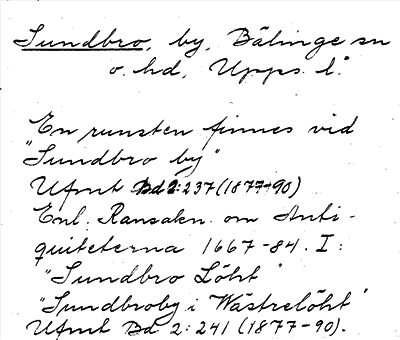 Sundbro, by, Bälinge sn
o. hd, Upps. l.
En runsten finnes vid
"Sundbro by"
Ufmt Bd 2:237 (1877-90)
Enl. Ransaken. om Anti-
quiteterna 1667-84. I:
"Sundbro Löht"
"Sundbroby i Wästrelöht"
Ufmt Bd 2:241 (1877-90).